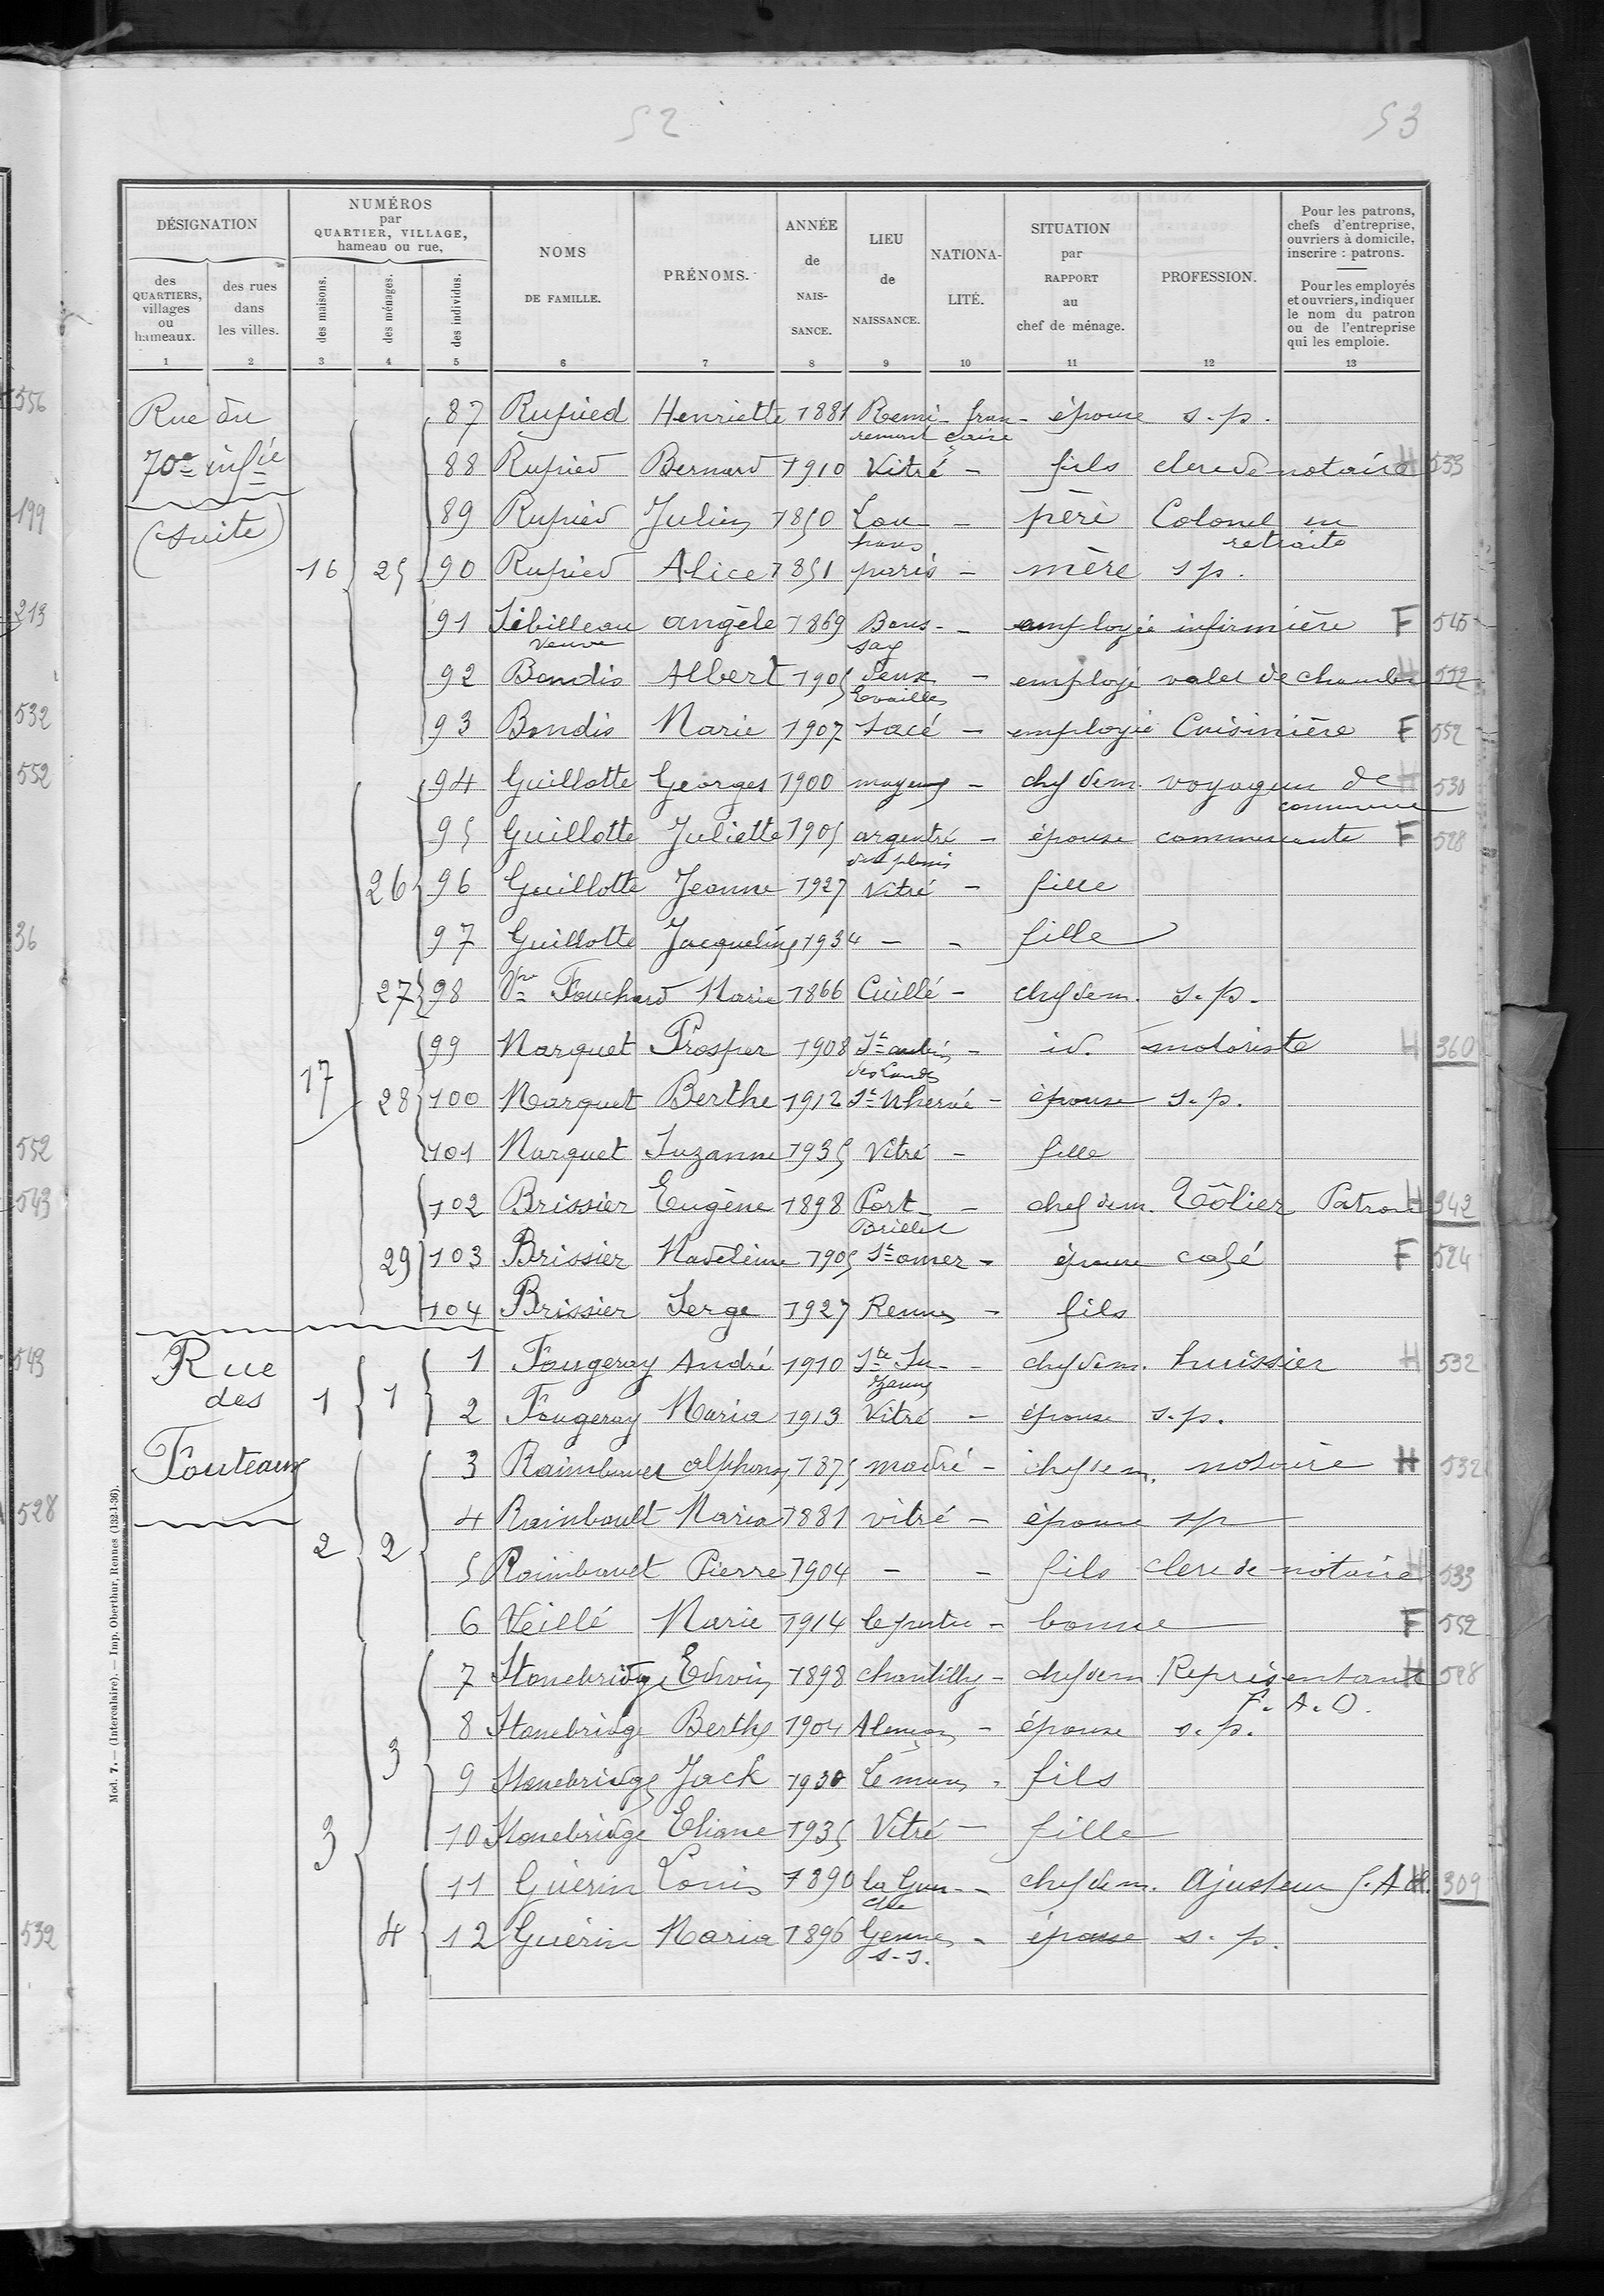 52 53
DÉSIGNATION
des QUARTIERS, villages ou hameaux.
des rues dans les villes.
NUMÉROS par QUARTIER, VILLAGE, hameau ou rue,
des maisons.
des ménages.
des individus.
NOMS DE FAMILLE.
PRÉNOMS.
ANNÉE de NAISSANCE.
LIEU de NAISSANCE.
NATIONALITÉ.
SITUATION par RAPPORT au chef de ménage.
PROFESSION.
Pour les patrons, chefs d'entreprise, ouvriers à domicile, inscrire : patrons.
Pour les employés et ouvriers, indiquer le nom du patron ou de l'entreprise qui les emploie.
1 2 3 4 5 6 7 8 9 10 11 12 13
Rue du 87 Rupied Henriette 1881 Remi- fran- épouse s.p.
remont çaise
70e infie 88 Rupied Bernard 1910 Vitré - fils clerc de notaire H 533
(suite) 89 Rupied Julien 1850 Lou- - père Colonel en
retraite
16 25 90 Rupied Alice 1851 paris - mère s p.
91 Sébilleau angèle 1869 Bous- - employée infirmière F 545
veuve say
92 Bondis Albert 1905 Deux - employé valet de chambre H 552
Evailles
93 Bondis Marie 1907 Sacé - employée Cuisinière F 552
94 Guillotte Georges 1900 mayenne - chef de m. voyageur de H 530
commerce
95 Guillotte Juliette 1905 argentré - épouse commerçante F 528
du plessis
26 96 Guillotte Jeanne 1927 Vitré - fille
97 Guillotte Jacqueline 1934 - - fille
27 98 Vve Fouchard Marie 1866 Cuillé - chef de m. s.p.
99 Marquet Prosper 1908 St aubin - id. motoriste H 360
des Landes
17 28 100 Marquet Berthe 1912 St Mhervé - épouse s.p.
101 Marquet Suzanne 1935 Vitré - fille
102 Brissier Eugène 1898 Port- - chef de m. Tôlier Patron H 342
Brillet
29 103 Brissier Madeleine 1905 St omer - épouse café F 524
104 Brissier Serge 1927 Rennes - fils
Rue 1 Fougeray André 1910 Ste Su- - chef de m. huissier H 532
zanne
des 1 1 2 Fougeray Maria 1913 Vitré - épouse s.p.
Fouteaux 3 Raimbault alphonse 1875 madré - chef de m. notaire H 532
4 Raimbault Maria 1881 vitré - épouse sp
2 2
5 Raimbault Pierre 1904 - - fils clerc de notaire H 533
6 Veillé Marie 1914 le pertre - bonne F 552
7 Stonebridge Edwin 1898 chantilly - chef de m Représentant H 528
F.A.O.
8 Stonebridge Berthe 1904 Alençon - épouse s.p.
3
9 Stonebridge Jack 1930 Le mans - fils
3 10 Stonebridge Eliane 1935 Vitré - fille
11 Guérin Louis 1890 la Guer- - chef de m. ajusteur H 309
che
4 12 Guérin Maria 1896 Gennes - épouse s.p.
s.s.
Mod. 7. — (Intercalaire). — Imp. Oberthur, Rennes (132-1-36).
556
199
213
532
552
36
552
543
543
528
532